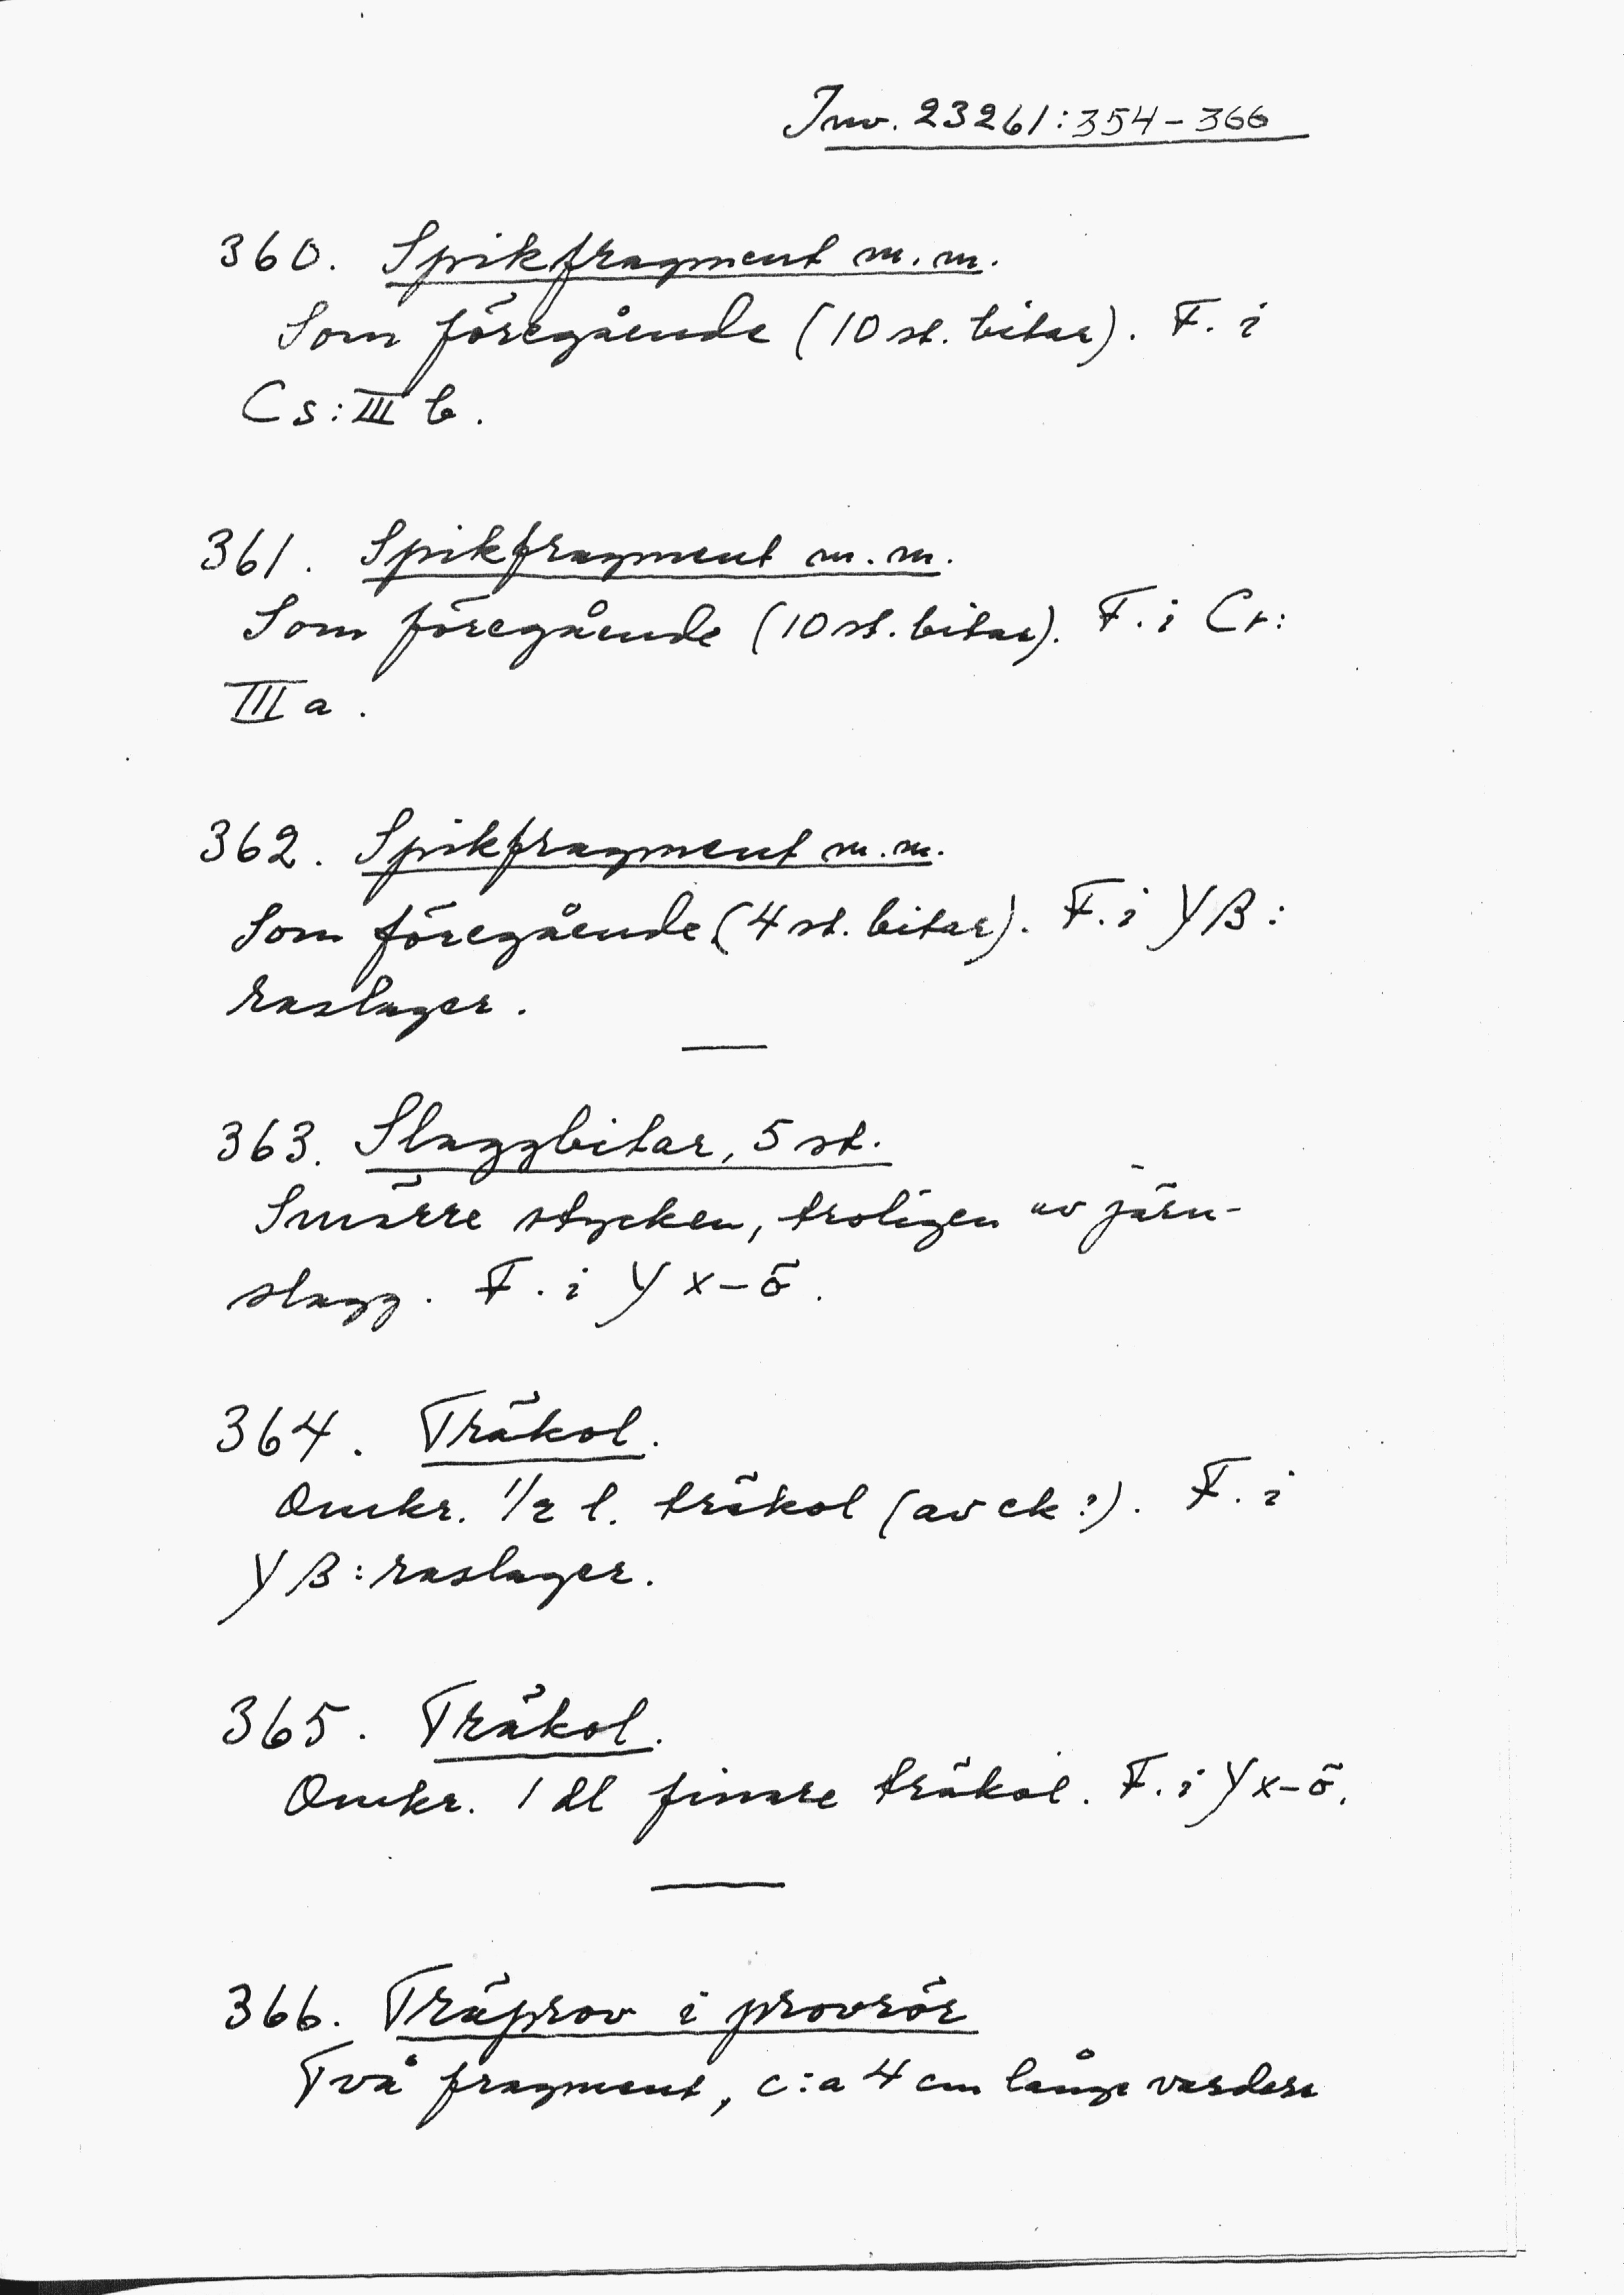 Inv. 23261:354-366
360. Spikfragment m.m.
Som föregående (10 st. bitar). F. i
Cs:III b.
361. Spikfragment m.m.
Som föregående (10 st. bitar). F. i Cr:
III a.
362. Spikfragment m.m.
Som föregående (4 st. bitar). F. i Yß:
raslager.
363. Slaggbitar, 5 st.
Smärre stycken, troligen av järn-
slagg. F. i Yx-ö.
364. Träkol.
Omkr. 1/2 l. träkol (av ek?). F. i
Yß:raslager.
365. Träkol.
Omkr. 1 dl finare träkol. F. i Yx-ö.
366. Träprov i provrör
Två fragment, c:a 4 cm långa vardera